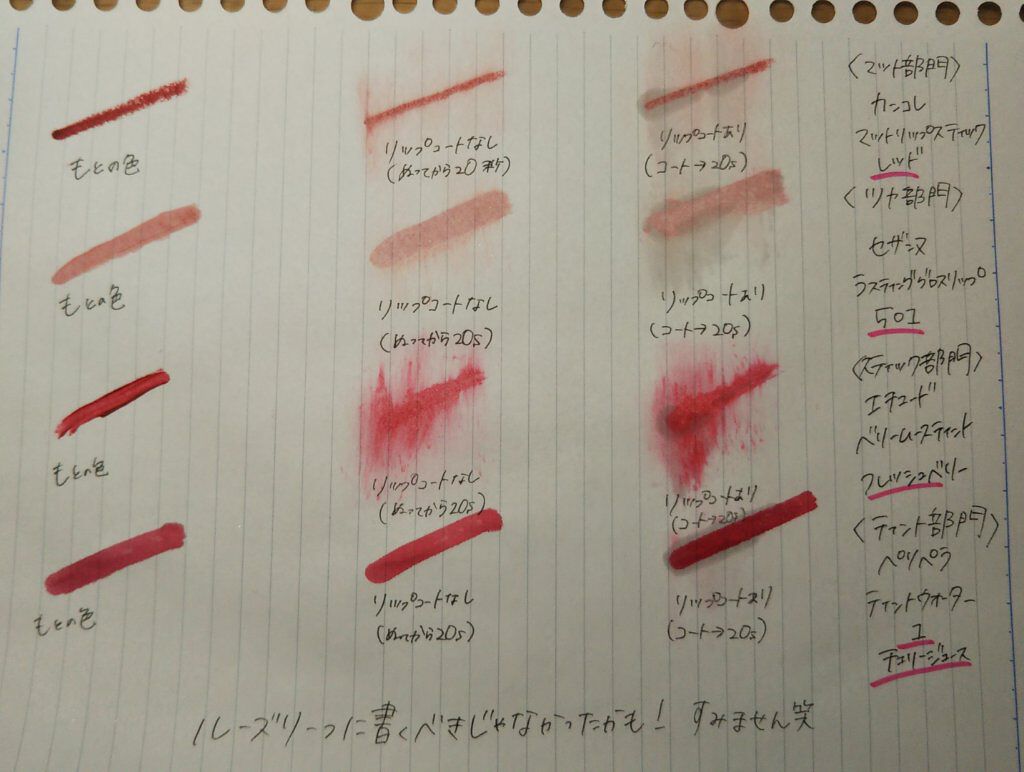 もとの色
リップコートなし
(ぬってから20秒)
リップコートあり
(コート→20s)
〈マット部門〉
カンコレ
マットリップスティック
レッド
もとの色
リップコートなし
(ぬってから20s)
リップコートあり
(コート→20s)
〈ツヤ部門〉
セザンヌ
ラスティンググロスリップ
501
もとの色
リップコートなし
(ぬってから20s)
リップコートあり
(コート→20s)
〈スティック部門〉
エチュード
ベリームースティント
フレッシュベリー
もとの色
リップコートなし
(ぬってから20s)
リップコートあり
(コート→20s)
〈ティント部門〉
ペリペラ
ティントウォーター
1
チェリージュース
ルーズリーフに書くべきじゃなかったかも! すみません笑